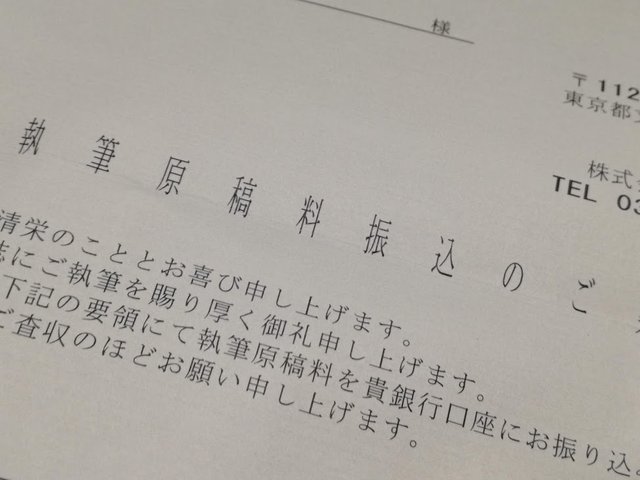 様
〒112
東京都文
株式会
TEL 03
執筆原稿料振込のご
清栄のこととお喜び申し上げます。
誌にご執筆を賜り厚く御礼申し上げます。
下記の要領にて執筆原稿料を貴銀行口座にお振り込み
ご査収のほどお願い申し上げます。